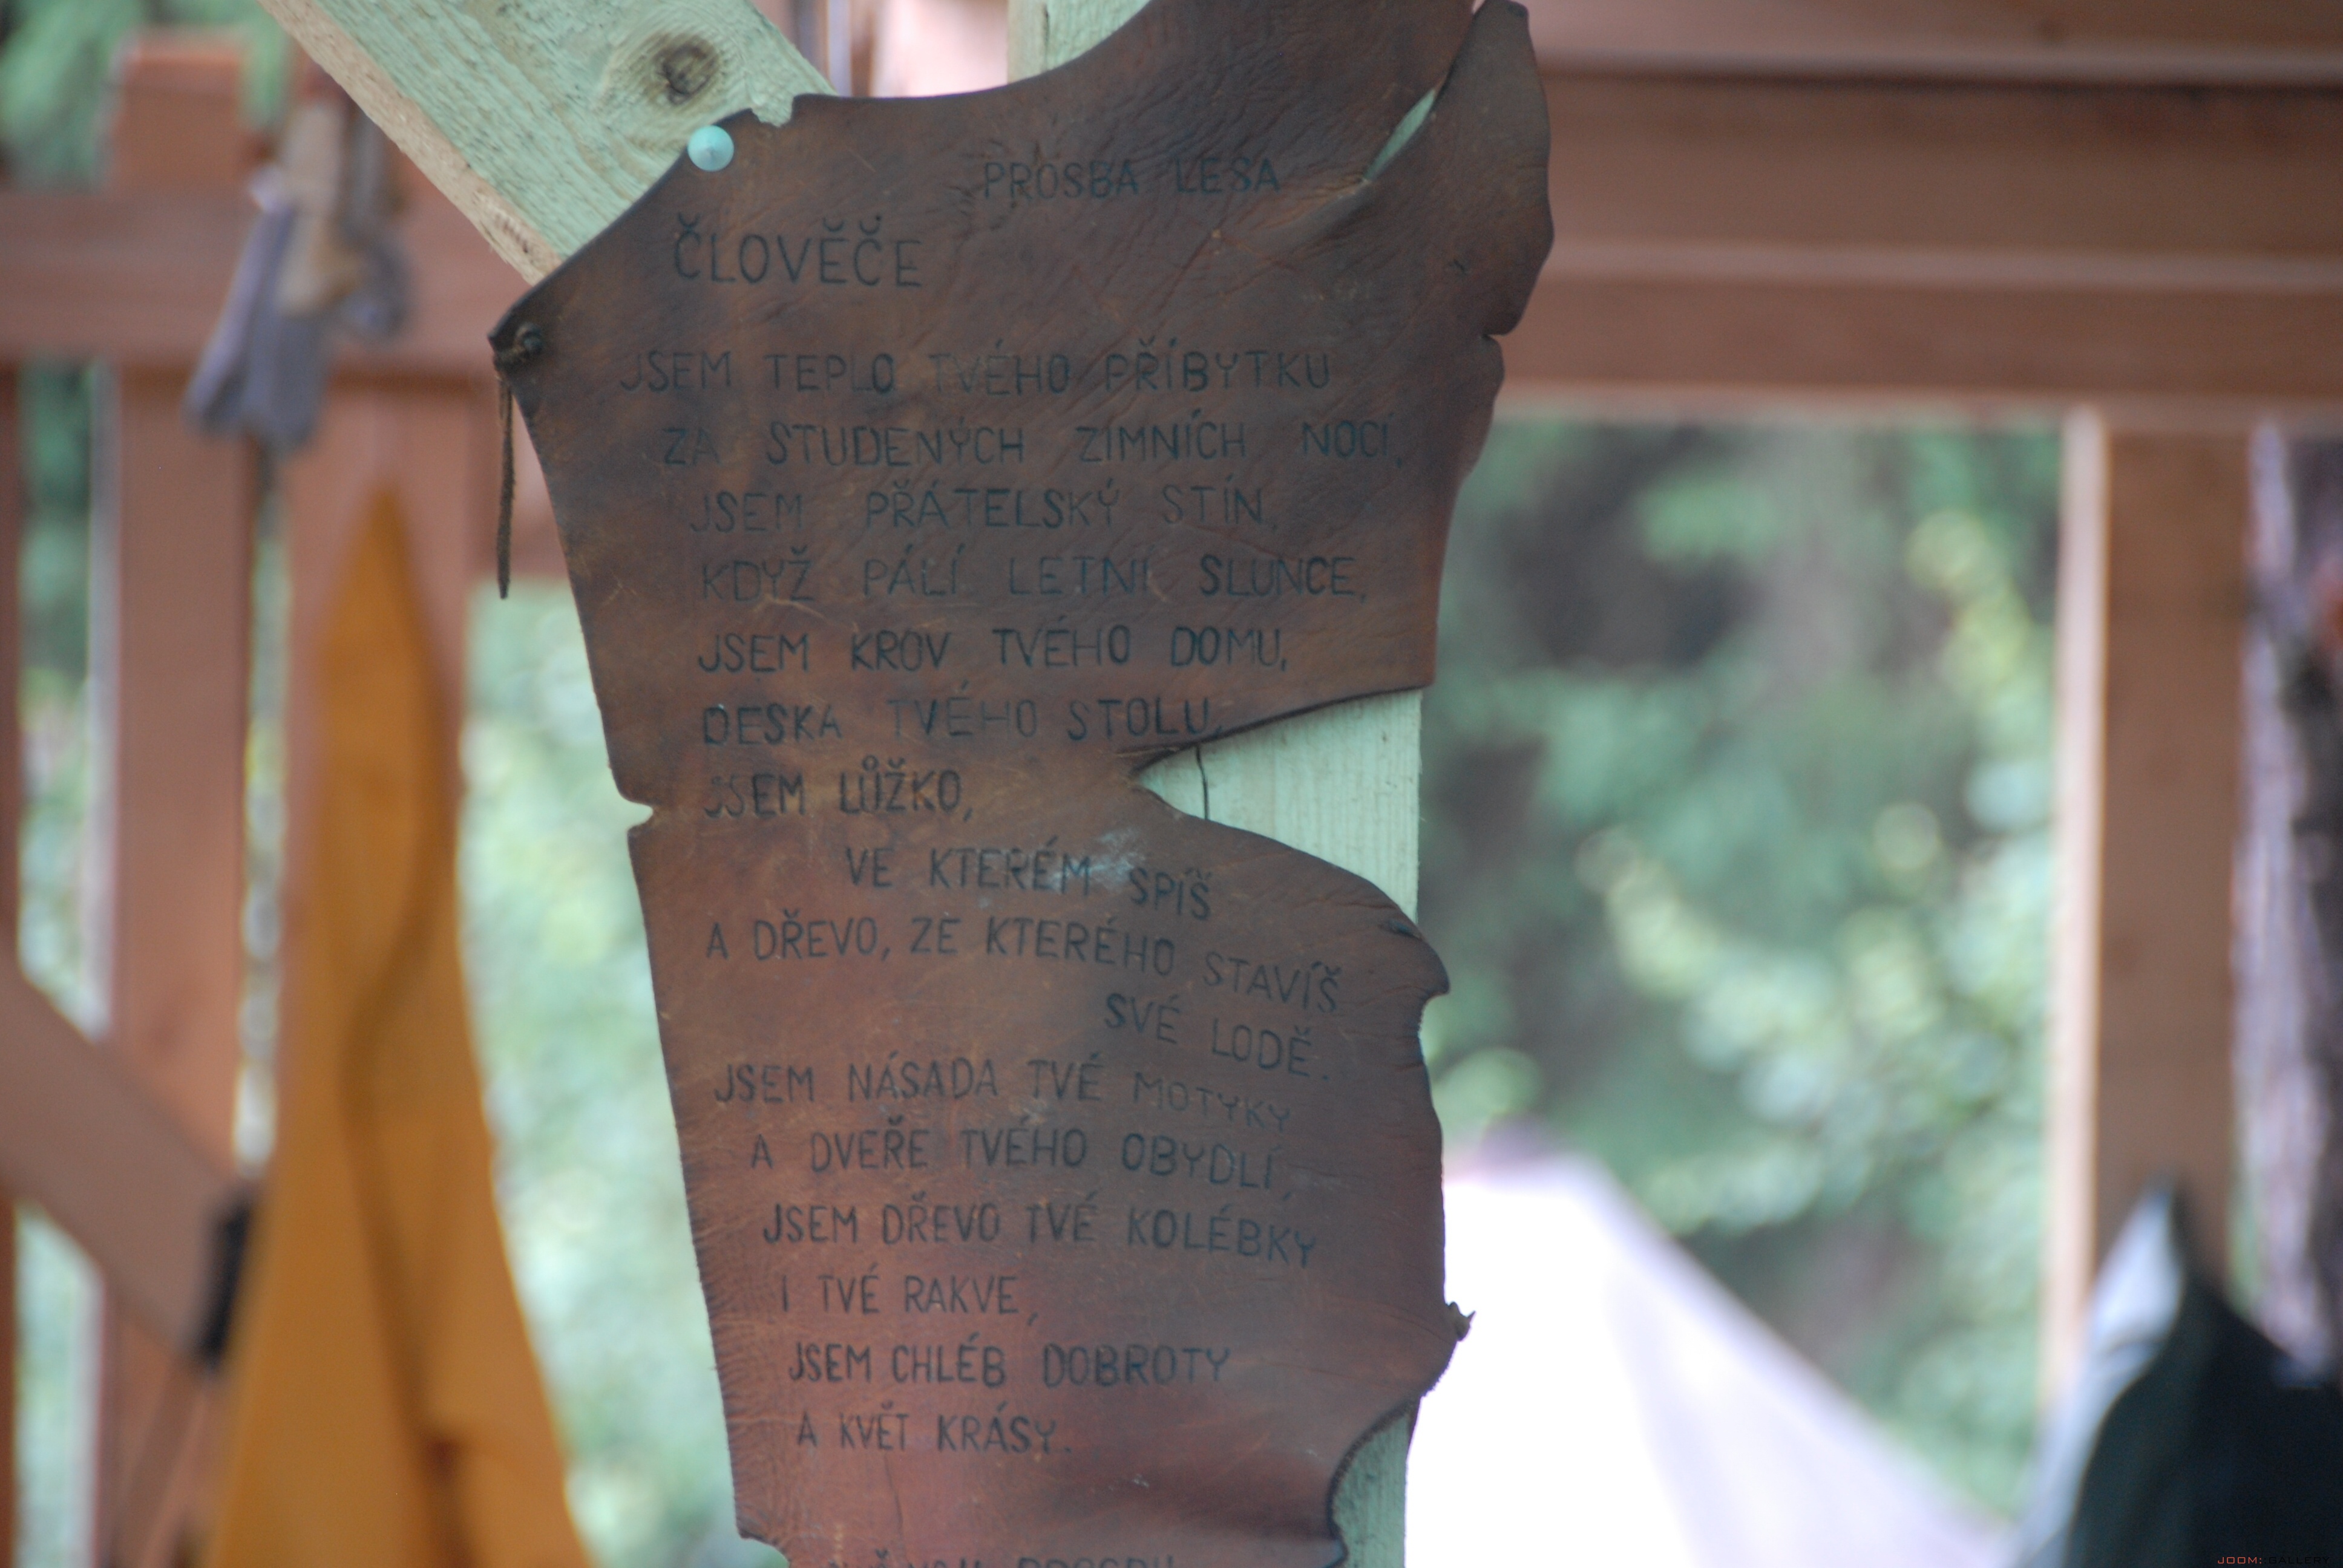 PROSBA LESA
ČLOVĚČE
JSEM TEPLO TVÉHO PŘÍBYTKU
ZA STUDENÝCH ZIMNÍCH NOCÍ,
JSEM PŘÁTELSKÝ STÍN,
KDYŽ PÁLÍ LETNÍ SLUNCE,
JSEM KROV TVÉHO DOMU,
DESKA TVÉHO STOLU,
JSEM LŮŽKO,
VE KTERÉM SPÍŠ
A DŘEVO, ZE KTERÉHO STAVÍŠ
SVÉ LODĚ.
JSEM NÁSADA TVÉ MOTYKY
A DVEŘE TVÉHO OBYDLÍ,
JSEM DŘEVO TVÉ KOLÉBKY
I TVÉ RAKVE,
JSEM CHLÉB DOBROTY
A KVĚT KRÁSY.
JOOM: GALLERY